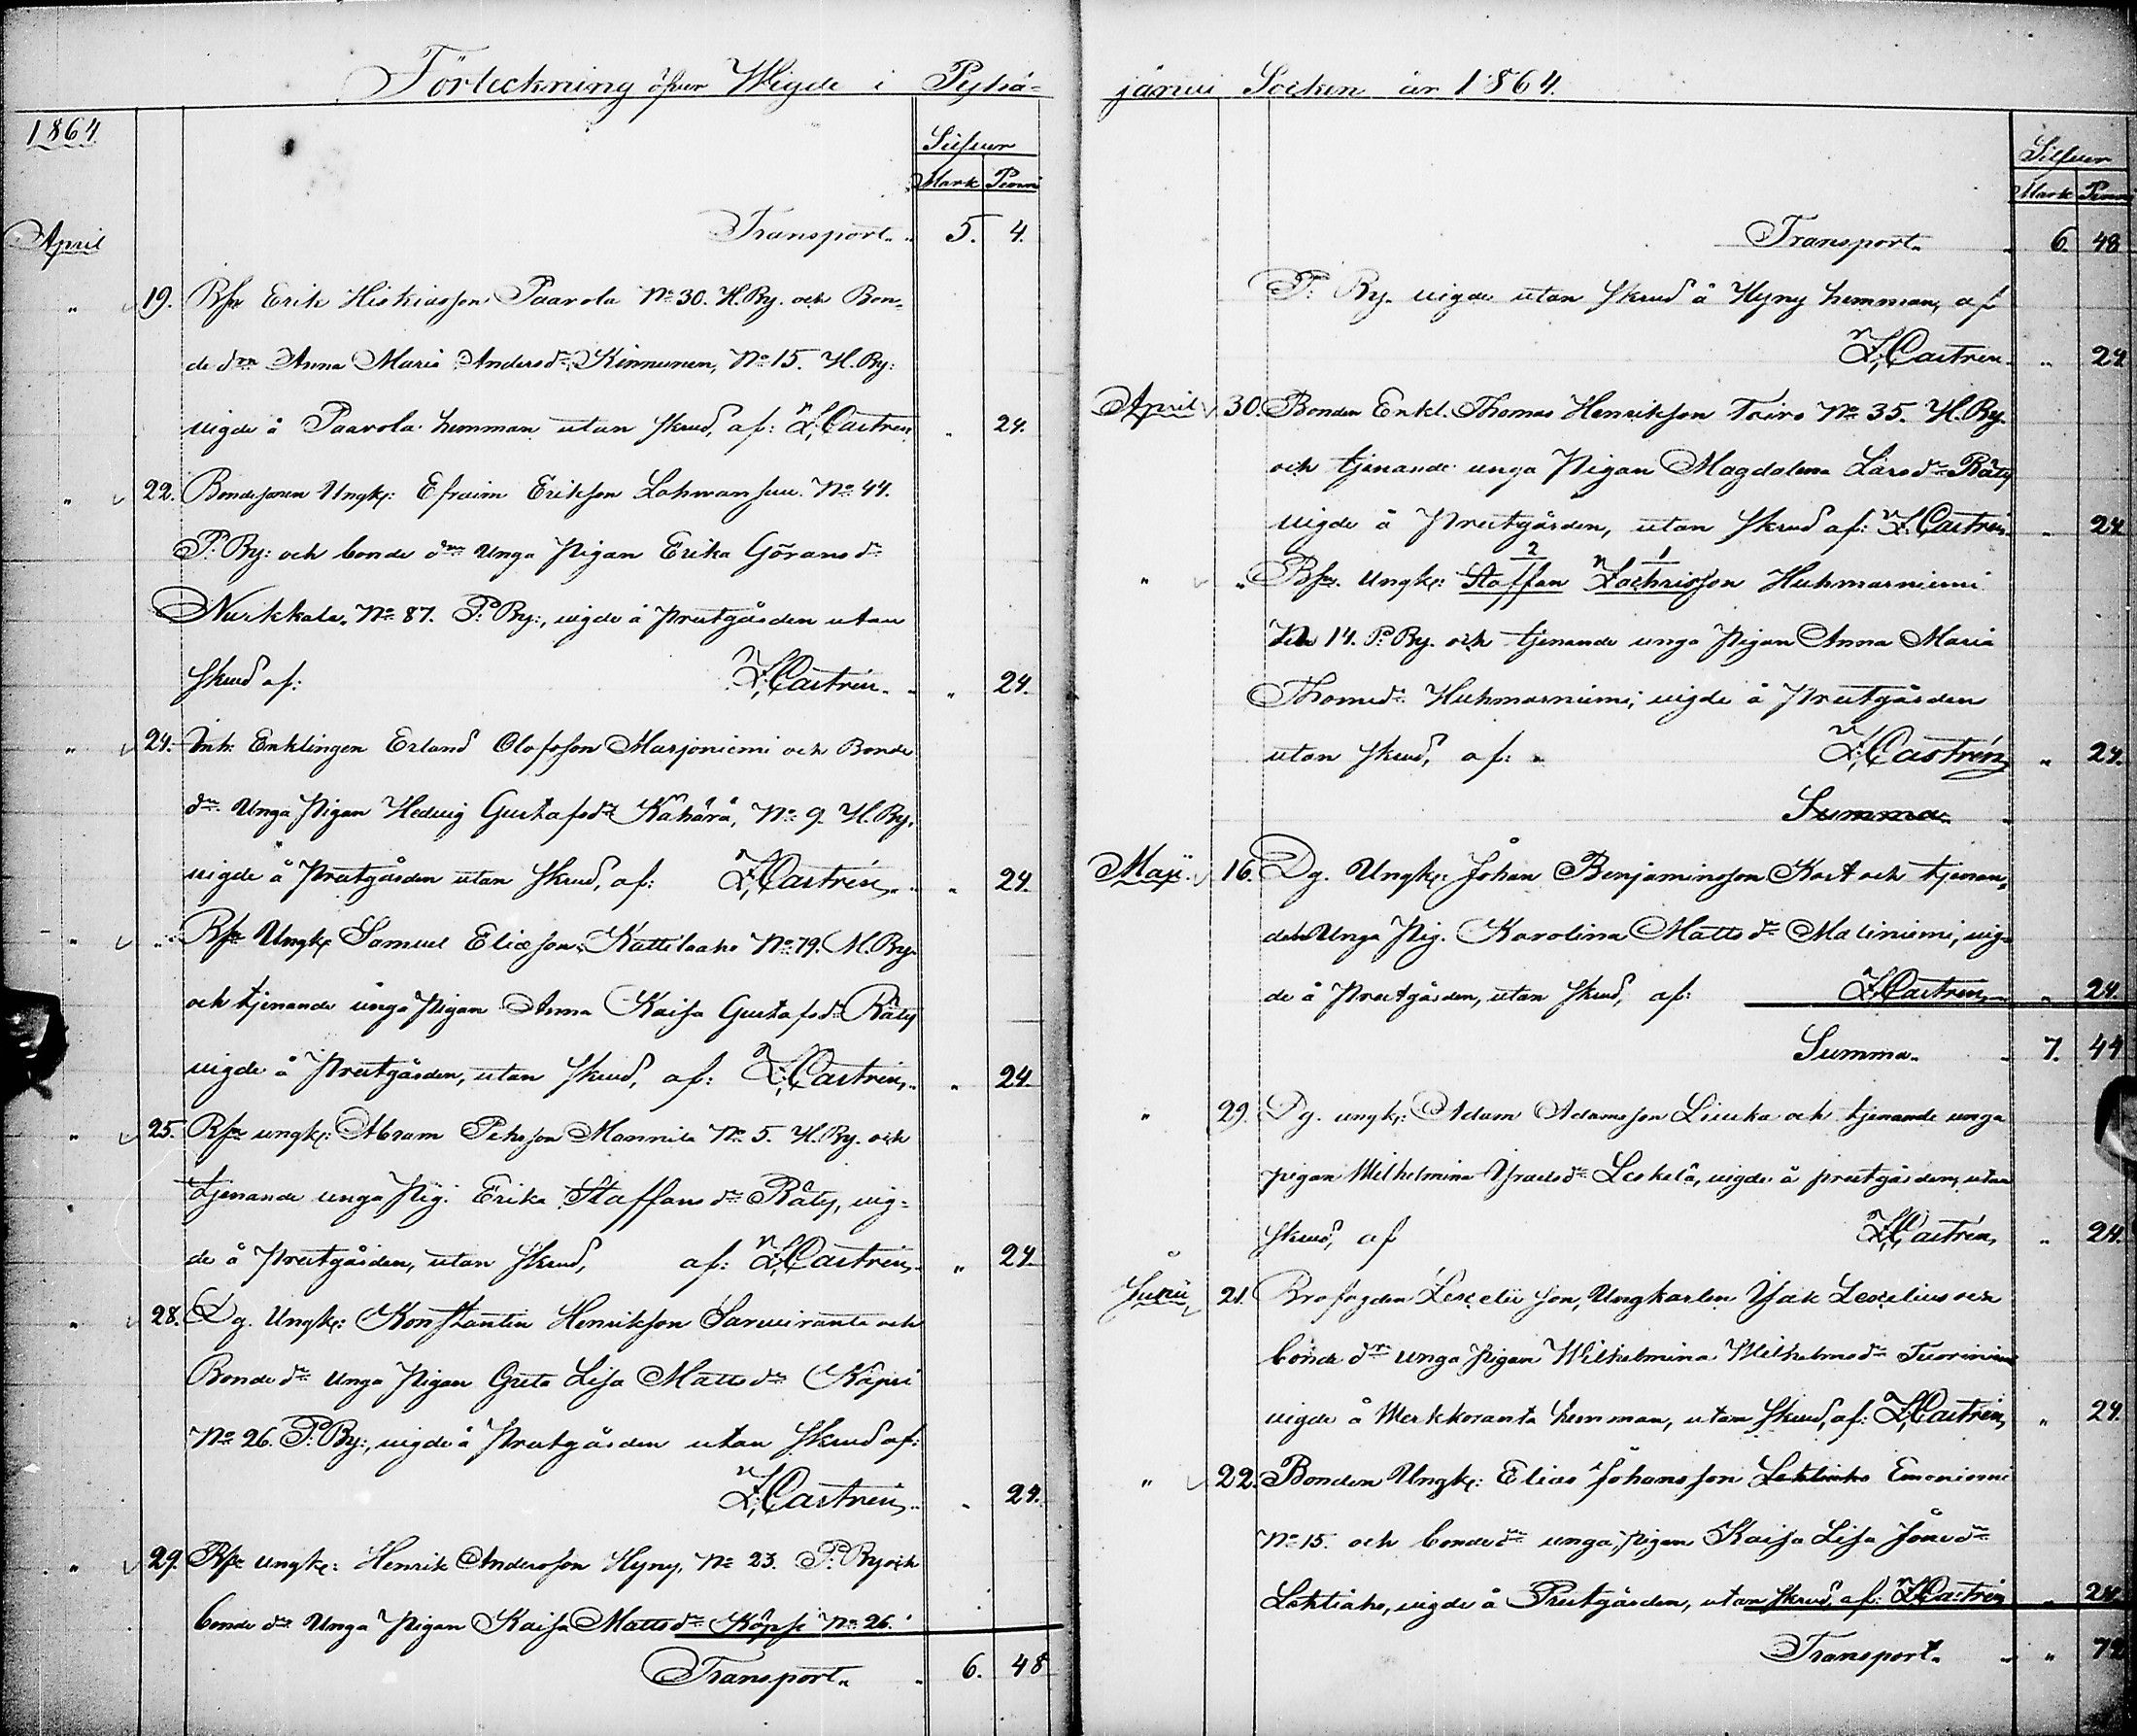 Förteckning öfver Wigde i Pyhä-
1864.
Silfver
Mark Penni
April
Transport.. 5. 4.
" 19. Bsn Erik Hiskiasson Paavola No 30. H.By. och Bon-
de drn Anna Maria Andersdr Kinnunen, No 15. H.By:
vigde å Paavola hemman utan skrud, af: Z. Castrén " 24.
" 22. Bondesonen Ungk: Efraim Eriksson No 44.
P. By: och bonde drn Unga Pigan Erika Göransdr
Nurkkala, No 87. P. By:, vigde å Prestgården utan
skrud af: Z. Castrén.. " 24.
" 24. Inh. Enklingen Erland Olofsson Marjoniemi och Bonde
drn Unga Pigan Hedvig Gustafsdr Kähärä, No 9. H.By.
vigde å Prestgården utan skrud, af: Z. Castrén.. " 24.
" " Bsn Ungk: Samuel Eliæson Kattilaaho No 79. H.By.
och tjenande unga Pigan Anna Kaisa Gustafsdr Räty
vigde å Prestgården, utan skrud, af: Z. Castrén.. " 24.
" 25. Bsn ungk: Abram Pehrsson Mannila No 5. H.By. och
tjenande unga Pig. Erika Staffansdr Räty, vig-
de å Prestgården, utan skrud, af: Z. Castrén. " 24.
" 28. Dg. Ungk: Konstantin Henriksson Sarviranta och
Bonde dr unga Pigan Greta Lisa Mattsdr Käpsi
No 26. P. By:, vigde å Prestgården utan skrud af:
Z. Castrén.. " 24.
" 29. Bsn ungk: Henrik Andersson Hyny, No 23. P. By och
bonde dr Unga Pigan Kaisa Mattsdr Käpsi No 26.
Transport.. 6. 48
järvi Socken år 1864.
Silfver
Mark Penni
Transport.. 6. 48
P. By. vigde utan skrud å Hyny hemman, af
Z. Castrén.. " 24
April 30. Bonden Enkl. Thomas Henriksson Toiro No 35. H.By.
och tjenande unga Pigan Magdalena Larsdr Räty
vigde å Prestgården, utan skrud af: Z. Castrén.. " 24
2 1
" " Bsn. Ungk: Staffan Zachrisson Huhmarniemi
No 14. P. By. och tjenande unga Pigan Anna Maria
Thomedr Huhmarniemi, vigde å Prestgården
utan skrud, af: Z. Castrén " 24.
Summa..
Maji 16. Dg. Ungk: Johan Benjaminsson Kort och tjenan-
de Unga Pig. Karolina Mattsdr Maliniemi, vig-
de å Prestgården, utan skrud, af: Z. Castrén.. " 24.
Summa.. 7. 44
" 29. Dg. ungk: Adam Adamsson Liuka och tjenande unga
pigan Wilhelmina Israelsdr Leskelä, vigde å prestgården, utan
skrud, af Z. Castrén, " 24.
Junii 21. Brofogden Lexelii son, Ungkarlen Isak Lexelius och
bonde drn unga Pigan Wilhelmina Wilhelmsdr Tuorinien
vigde å Merkkoranta hemman, utan skrud, af: Z. Castrén, " 24.
" 22. Bonden Ungk: Elias Johansson Lehtiaho Emoniemi
No 15. och bondedr unga, pigan Kaisa Lisa Jönsdr
Lehtiaho, vigde å Prestgården, utan skrud, af: Z. Castrén " 24.
Transport.. " 72